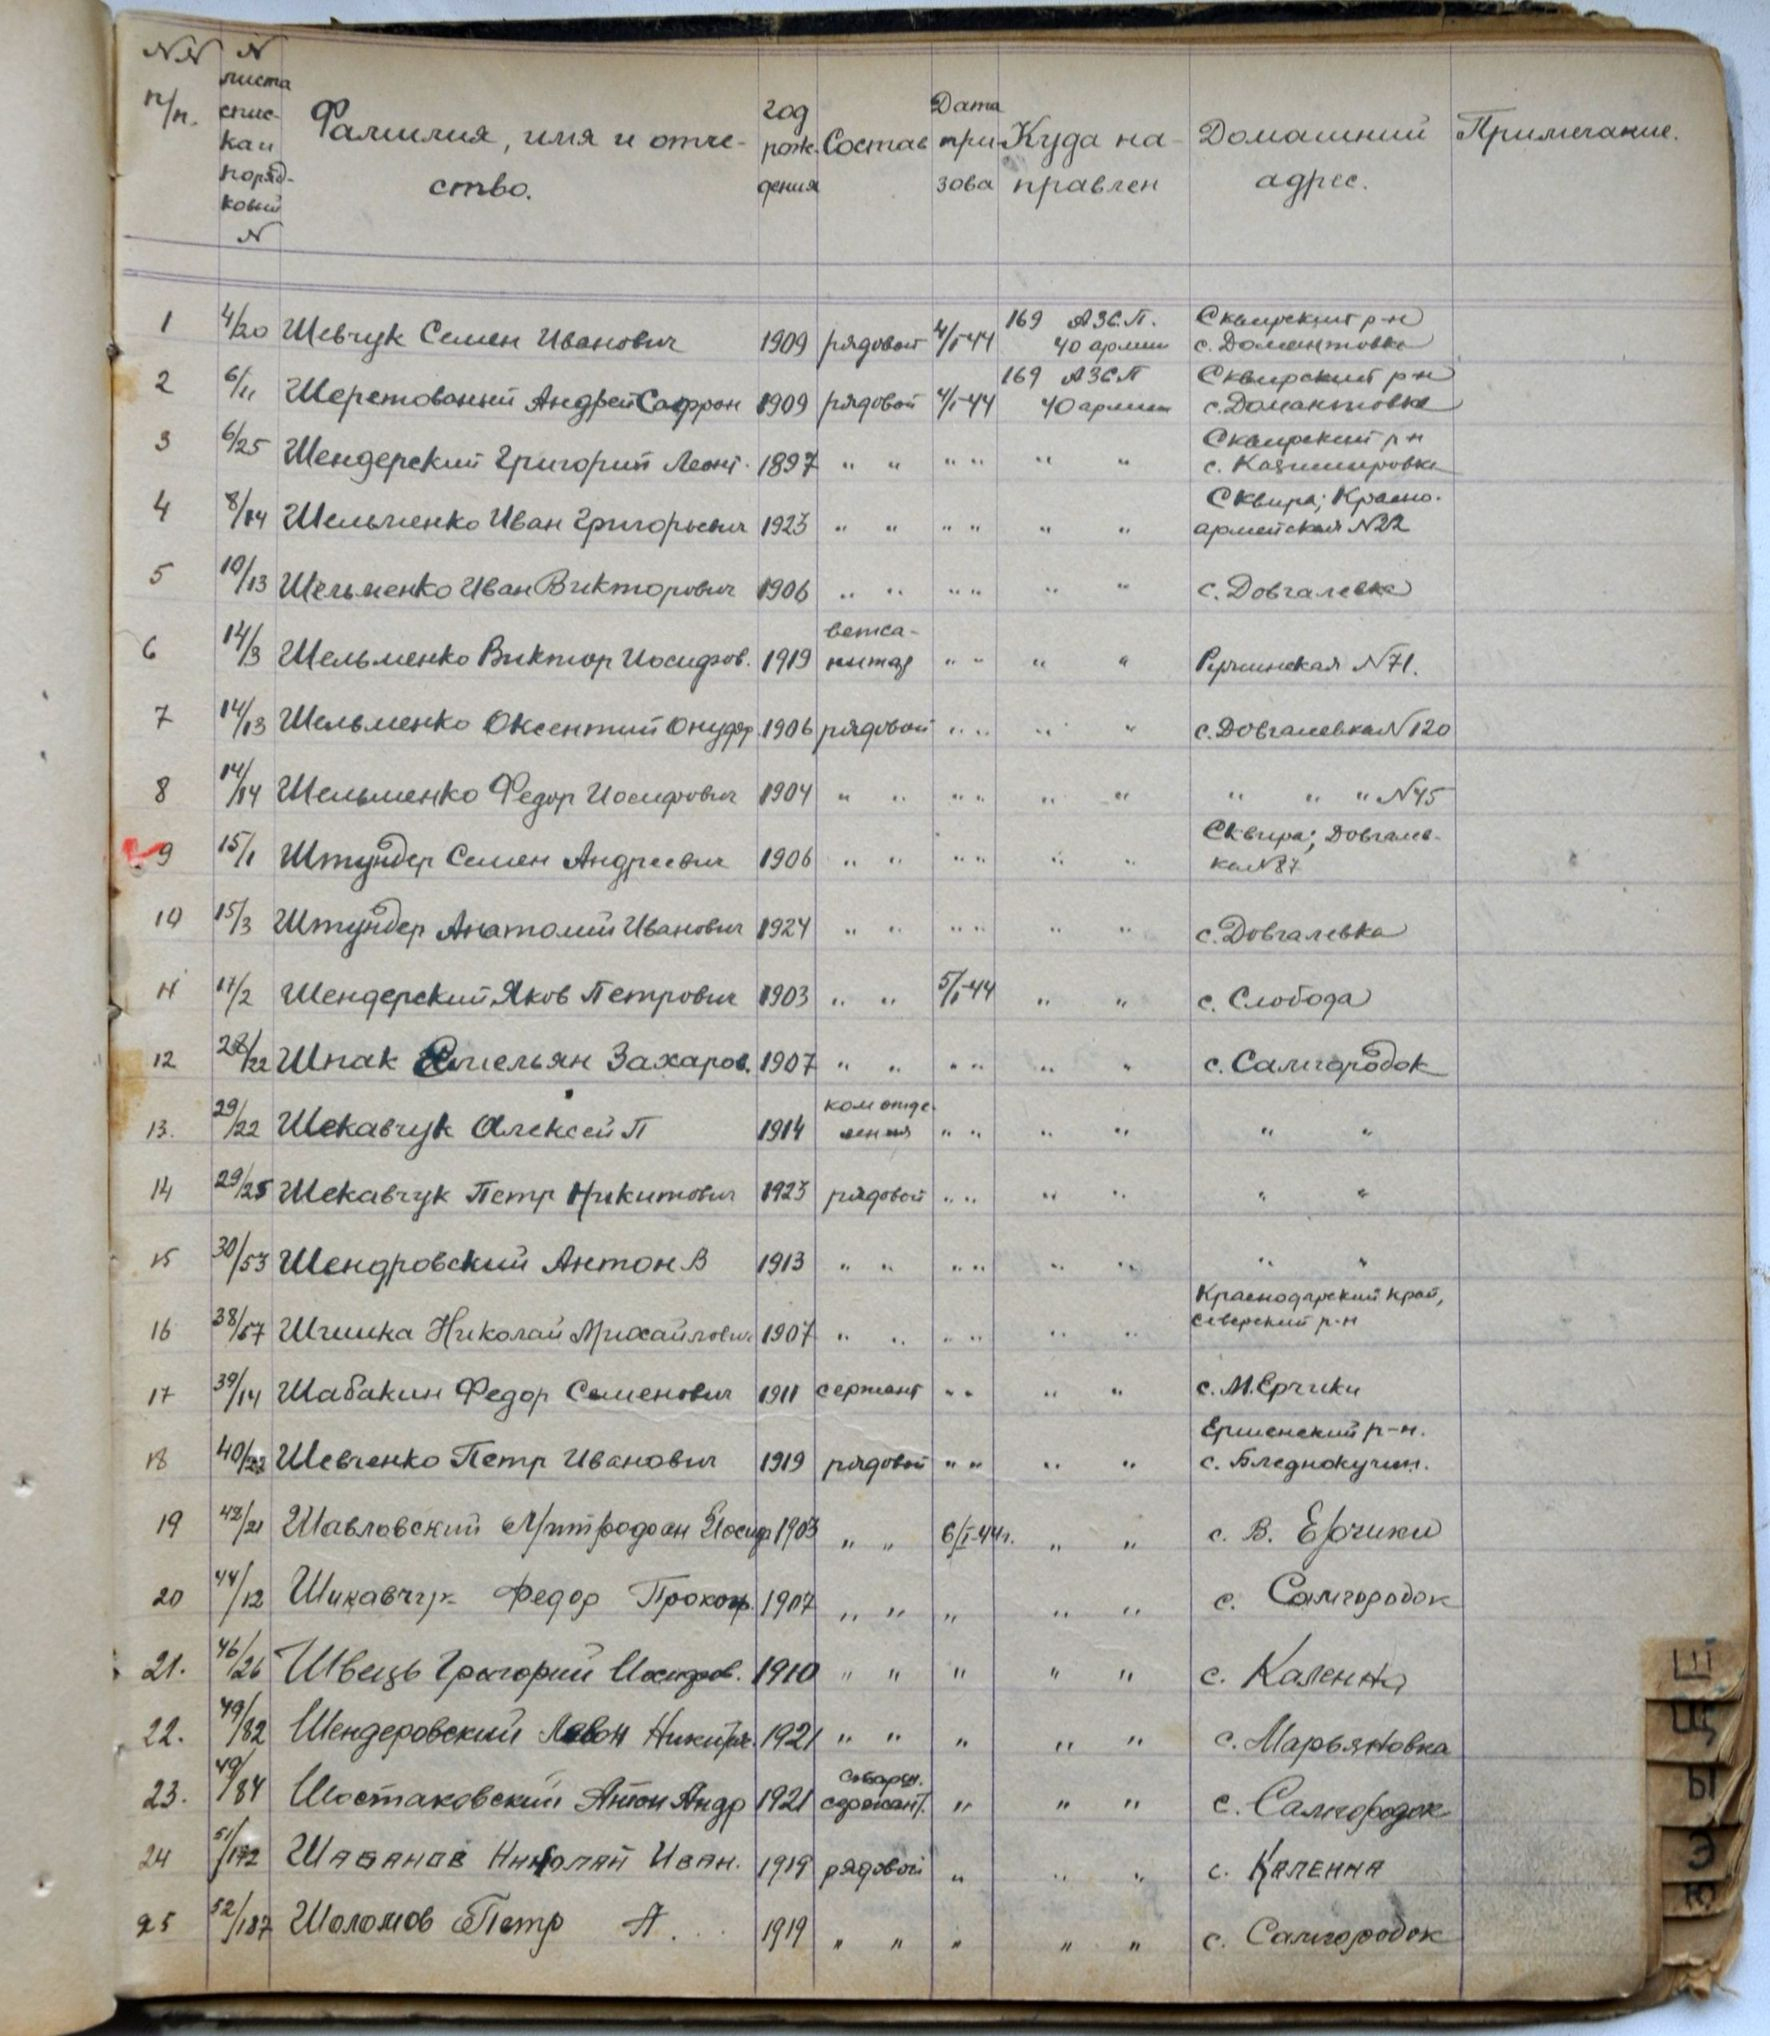 NN п/п. | N листа спис- ка и поряд- ковый N | Фамилия, имя и отче- ство. | год рож- дения | Состав | Дата при- зова | Куда на- правлен | Домашний адрес. | Примечание.
1 4/20 Шевчук Семен Иванович 1909 рядовой 4/I-44 169 АЗСП. 40 армии Сквирский р-н с. Домантовка
2 6/11 Шеретованый Андрей Сафрон 1909 рядовой 4/I-44 169 АЗСП 40 армии Сквирский р-н с. Домантовка
3 6/25 Шендерский Григорий Леонт. 1897 " " " " " " Сквирский р-н с. Казимировка
4 8/14 Шельменко Иван Григорьевич 1923 " " " " " " Сквира; Красно- армейская N22
5 10/13 Шельменко Иван Викторович 1906 " " " " " " с. Довгалевка
6 14/3 Шельменко Виктор Иосифов. 1919 ветса- нитар " " " " N71.
7 14/13 Шельменко Оксентий Онуфр. 1906 рядовой " " " " с. Довгалевка N120
8 14/14 Шельменко Федор Иосифович 1904 " " " " " " " " " N45
9 15/1 Штундер Семен Андреевич 1906 " " " " " " Сквира; Довгалев- ка N87
10 15/3 Штундер Анатолий Иванович 1924 " " " " " " с. Довгалевка
11 17/2 Шендерский Яков Петрович 1903 " " 5/I-44 " " с. Слобода
12 28/22 Шпак Емельян Захаров. 1907 " " " " " " с. Самгородок
13. 29/22 Шекавчук Алексей П 1914 ком отде- ления " " " " " "
14 29/25 Шекавчук Петр Никитович 1923 рядовой " " " " " "
15 30/53 Шендровский Антон В 1913 " " " " " " " "
16 38/57 Шишка Николай Михайлович 1907 " " " " " " Краснодарский край, Северский р-н
17 39/14 Шабакин Федор Семенович 1911 сержант " " " " с. М. Ерчики
18 40/23 Шевченко Петр Иванович 1919 рядовой " " " " р-н. с.
19 42/21 Шавловский Митрофан Иосиф 1903 " " 6/I-44г. " " с. В. Ерчики
20 44/12 Шикавчук Федор Прокоп. 1907 " " " " " с. Самгородок
21. 46/26 Швець Григорий Иосифов. 1910 " " " " " с. Каленна
22. 49/82 Шендеровский Никит. 1921 " " " " " с. Марьяновка
23. 49/84 Шостаковский Антон Андр 1921 старш. сержант. " " " с. Самгородок
24 51/172 Шабанов Николай Иван. 1919 рядовой " " " с. Каленна
25 52/187 Шоломов Петр А. 1919 " " " " " с. Самгородок
Ш
Щ
Ы
Э
Ю